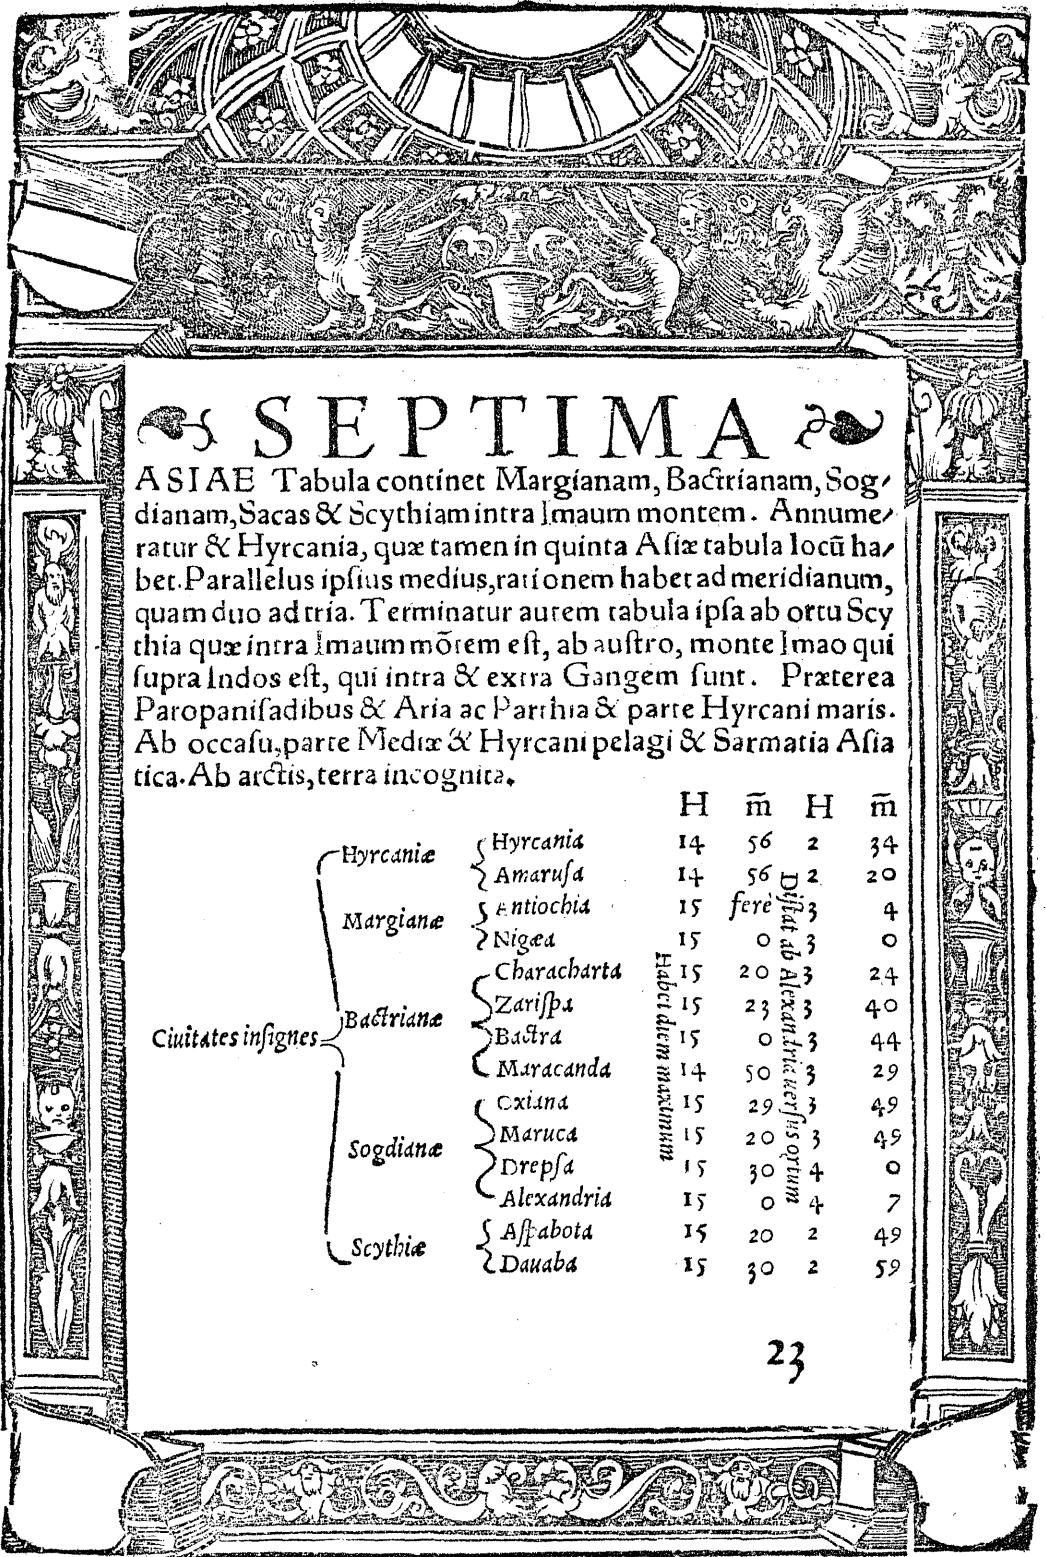 SEPTIMA
ASIAE Tabula continet Margianam, Bactrianam, Sog-
dianam, Sacas & Scythiam intra Imaum montem. Annume-
ratur & Hyrcania, quæ tamen in quinta Asiæ tabula locũ ha-
bet. Parallelus ipsius medius, rationem habet ad meridianum,
quam duo ad tria. Terminatur autem tabula ipsa ab ortu Scy
thia quæ intra Imaum mõtem est, ab austro, monte Imao qui
supra Indos est, qui intra & extra Gangem sunt. Præterea
Paropanisadibus & Aria ac Parthia & parte Hyrcani maris.
Ab occasu, parte Mediæ & Hyrcani pelagi & Sarmatia Asia
tica. Ab arctis, terra incognita.
H m̄ H m̄
Ciuitates insignes
Habet diem maximum
Distat ab Alexandria uersus ortum
Hyrcaniæ
Hyrcania 14 56 2 34
Amarusa 14 56 2 20
Margianæ
Antiochia 15 ferè 3 4
Nigæa 15 0 3 0
Bactrianæ
Characharta 15 20 3 24
Zarispa 15 23 3 40
Bactra 15 0 3 44
Maracanda 14 50 3 29
Sogdianæ
Oxiana 15 29 3 49
Maruca 15 20 3 49
Drepsa 15 30 4 0
Alexandria 15 0 4 7
Scythiæ
Aspabota 15 20 2 49
Dauaba 15 30 2 59
23